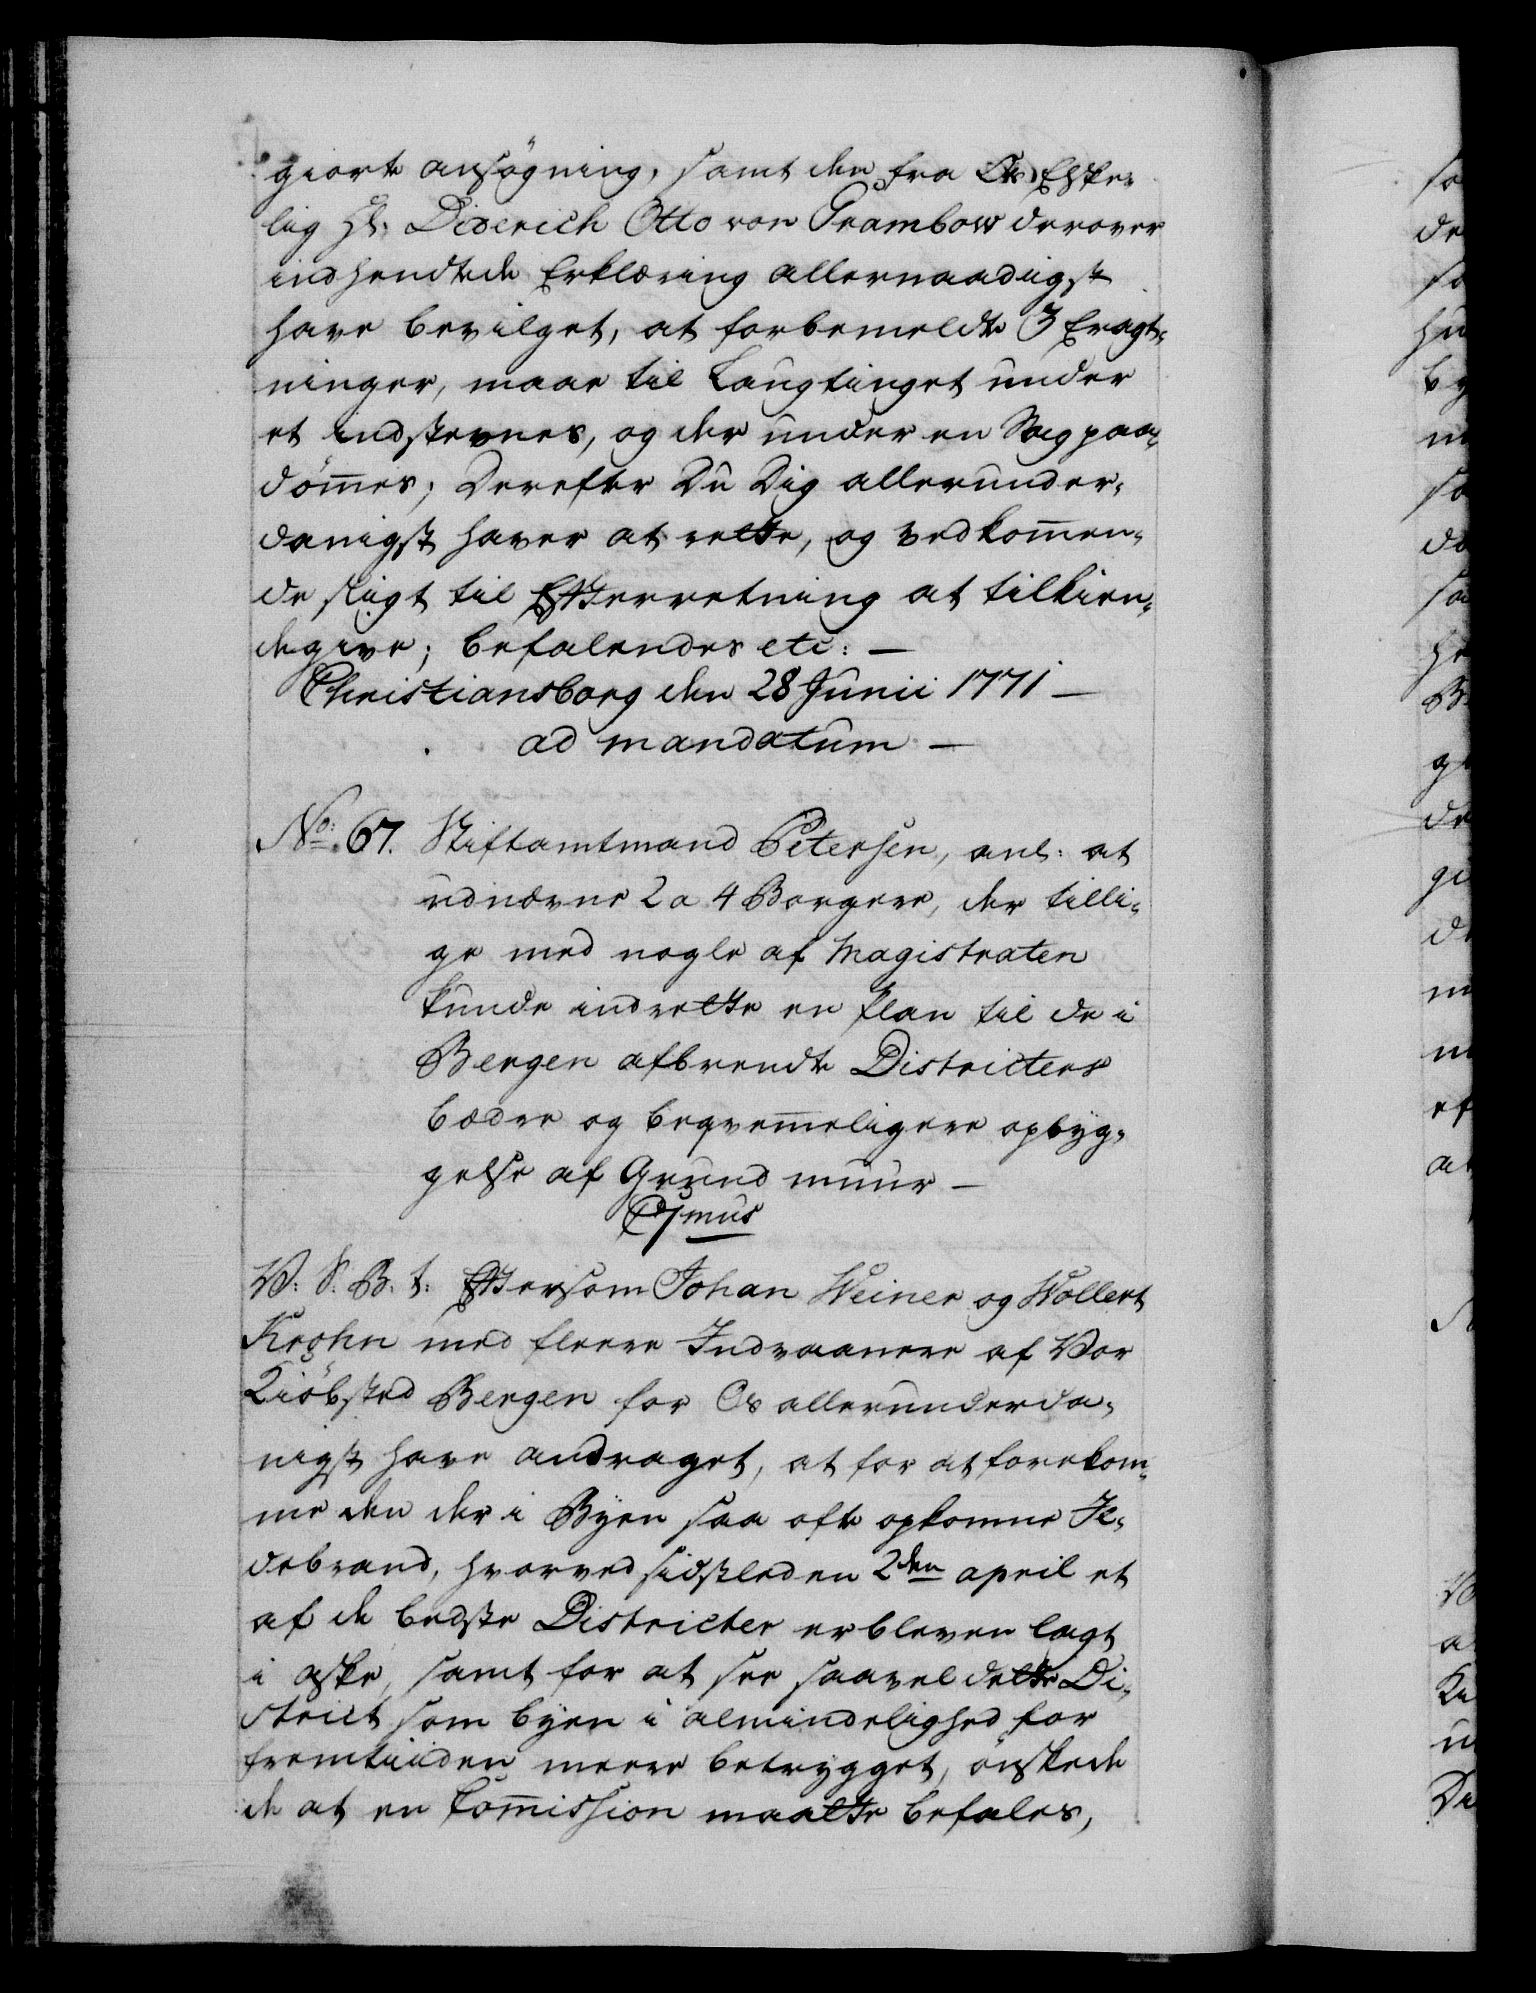 giorte ansøgning, samt den fra Os Elske-
lig Hr: Diderich Otto von Grambow derover
indhendtede Erklæring allernaadigst
have bevilget, at forbemeldte 3 Eragt-
ninger, maae til Laugtinget under
et indstevnes, og der under en Sag paa-
dömes; Derefter Du Dig allerunder-
danigst haver at rette, og vedkomen-
de sligt til Efterretning at tilkien-
degive; befalendes etc: —
Christiansborg den 28 Junii 1771 —
ad mandatum —
No: 67. Stiftamtmand Petersen, anl: at
udnævne 2 a 4 Borgere, der tilli-
ge med nogle af Magistraten
kunde indrette en Plan til de i
Bergen afbrendte Districters
bædre og beqvemeligere opbyg-
gelse af Grund muur —
C7mus
V: S: B: t: Eftersom Johan Weiner og Wollert
Krohn med fleere Indvaanere af Vor
Kiöbsted Bergen for Os allerunderda-
nigst have andraget, at for at forekom-
me den der i Byen saa ofte opkomne Il-
debrand, hvorved sidstleden 2den april et
af de bedste Districter er bleven lagt
i aske, samt for at see saavel dette Di-
strict som byen i almindelighed for
fremtiiden meere betrygget, önskede
de at en Comission maatte befales,